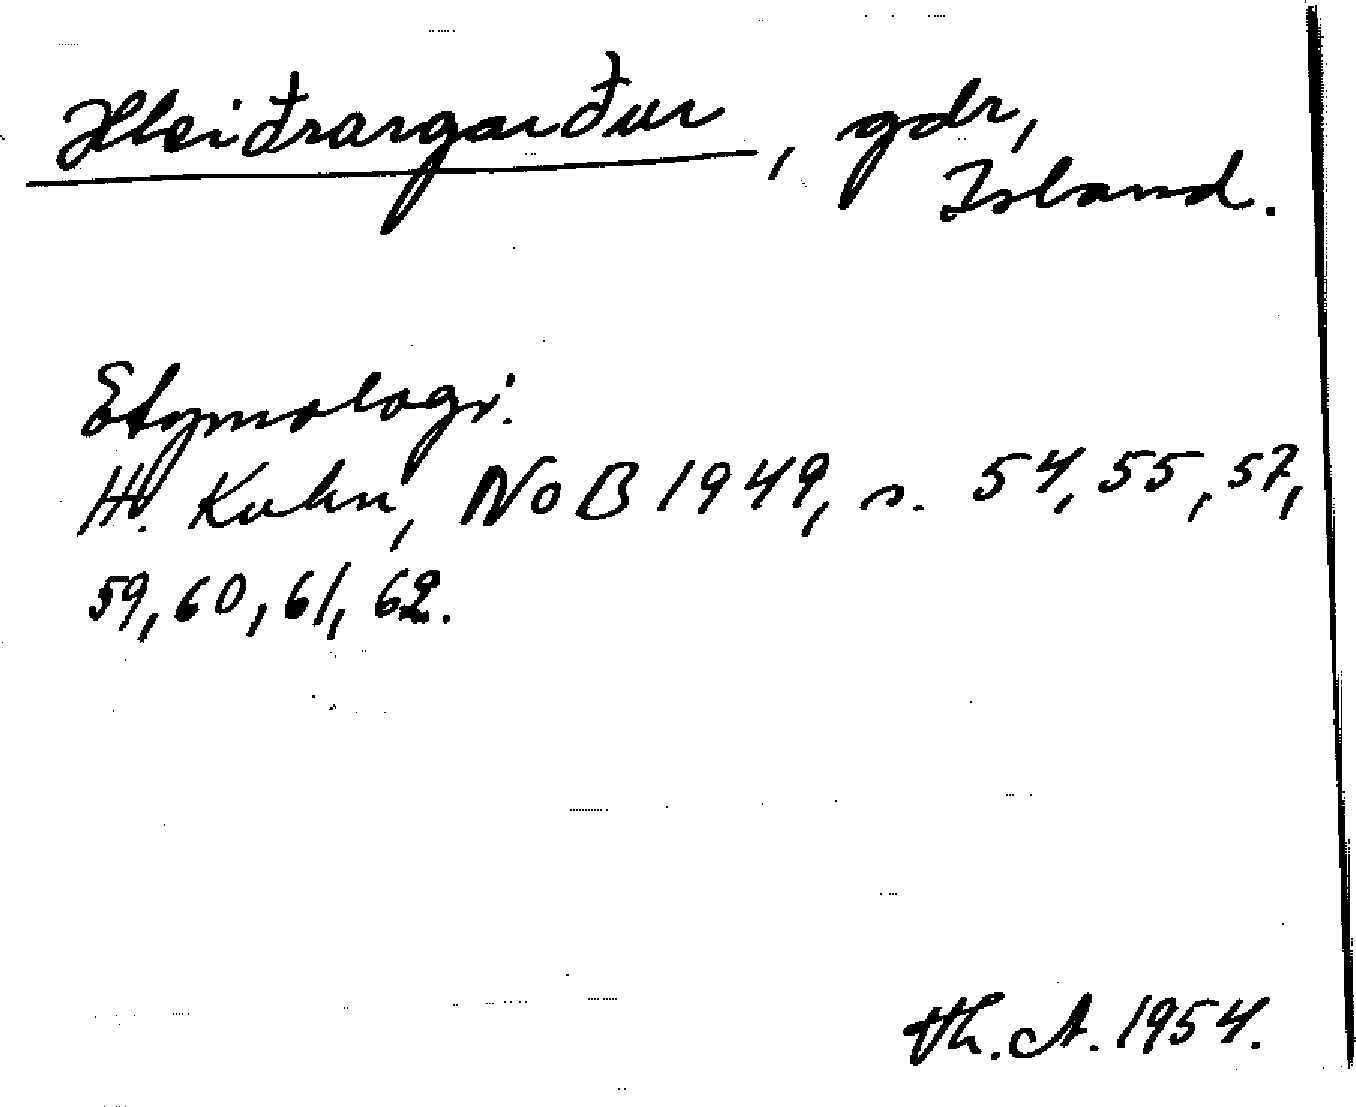 Hleiðrargarður, gdr,
Island.
Etymologi.
H. Kuhn, NoB 1949, s. 54, 55, 57,
59, 60, 61, 62.
Th. A. 1954.